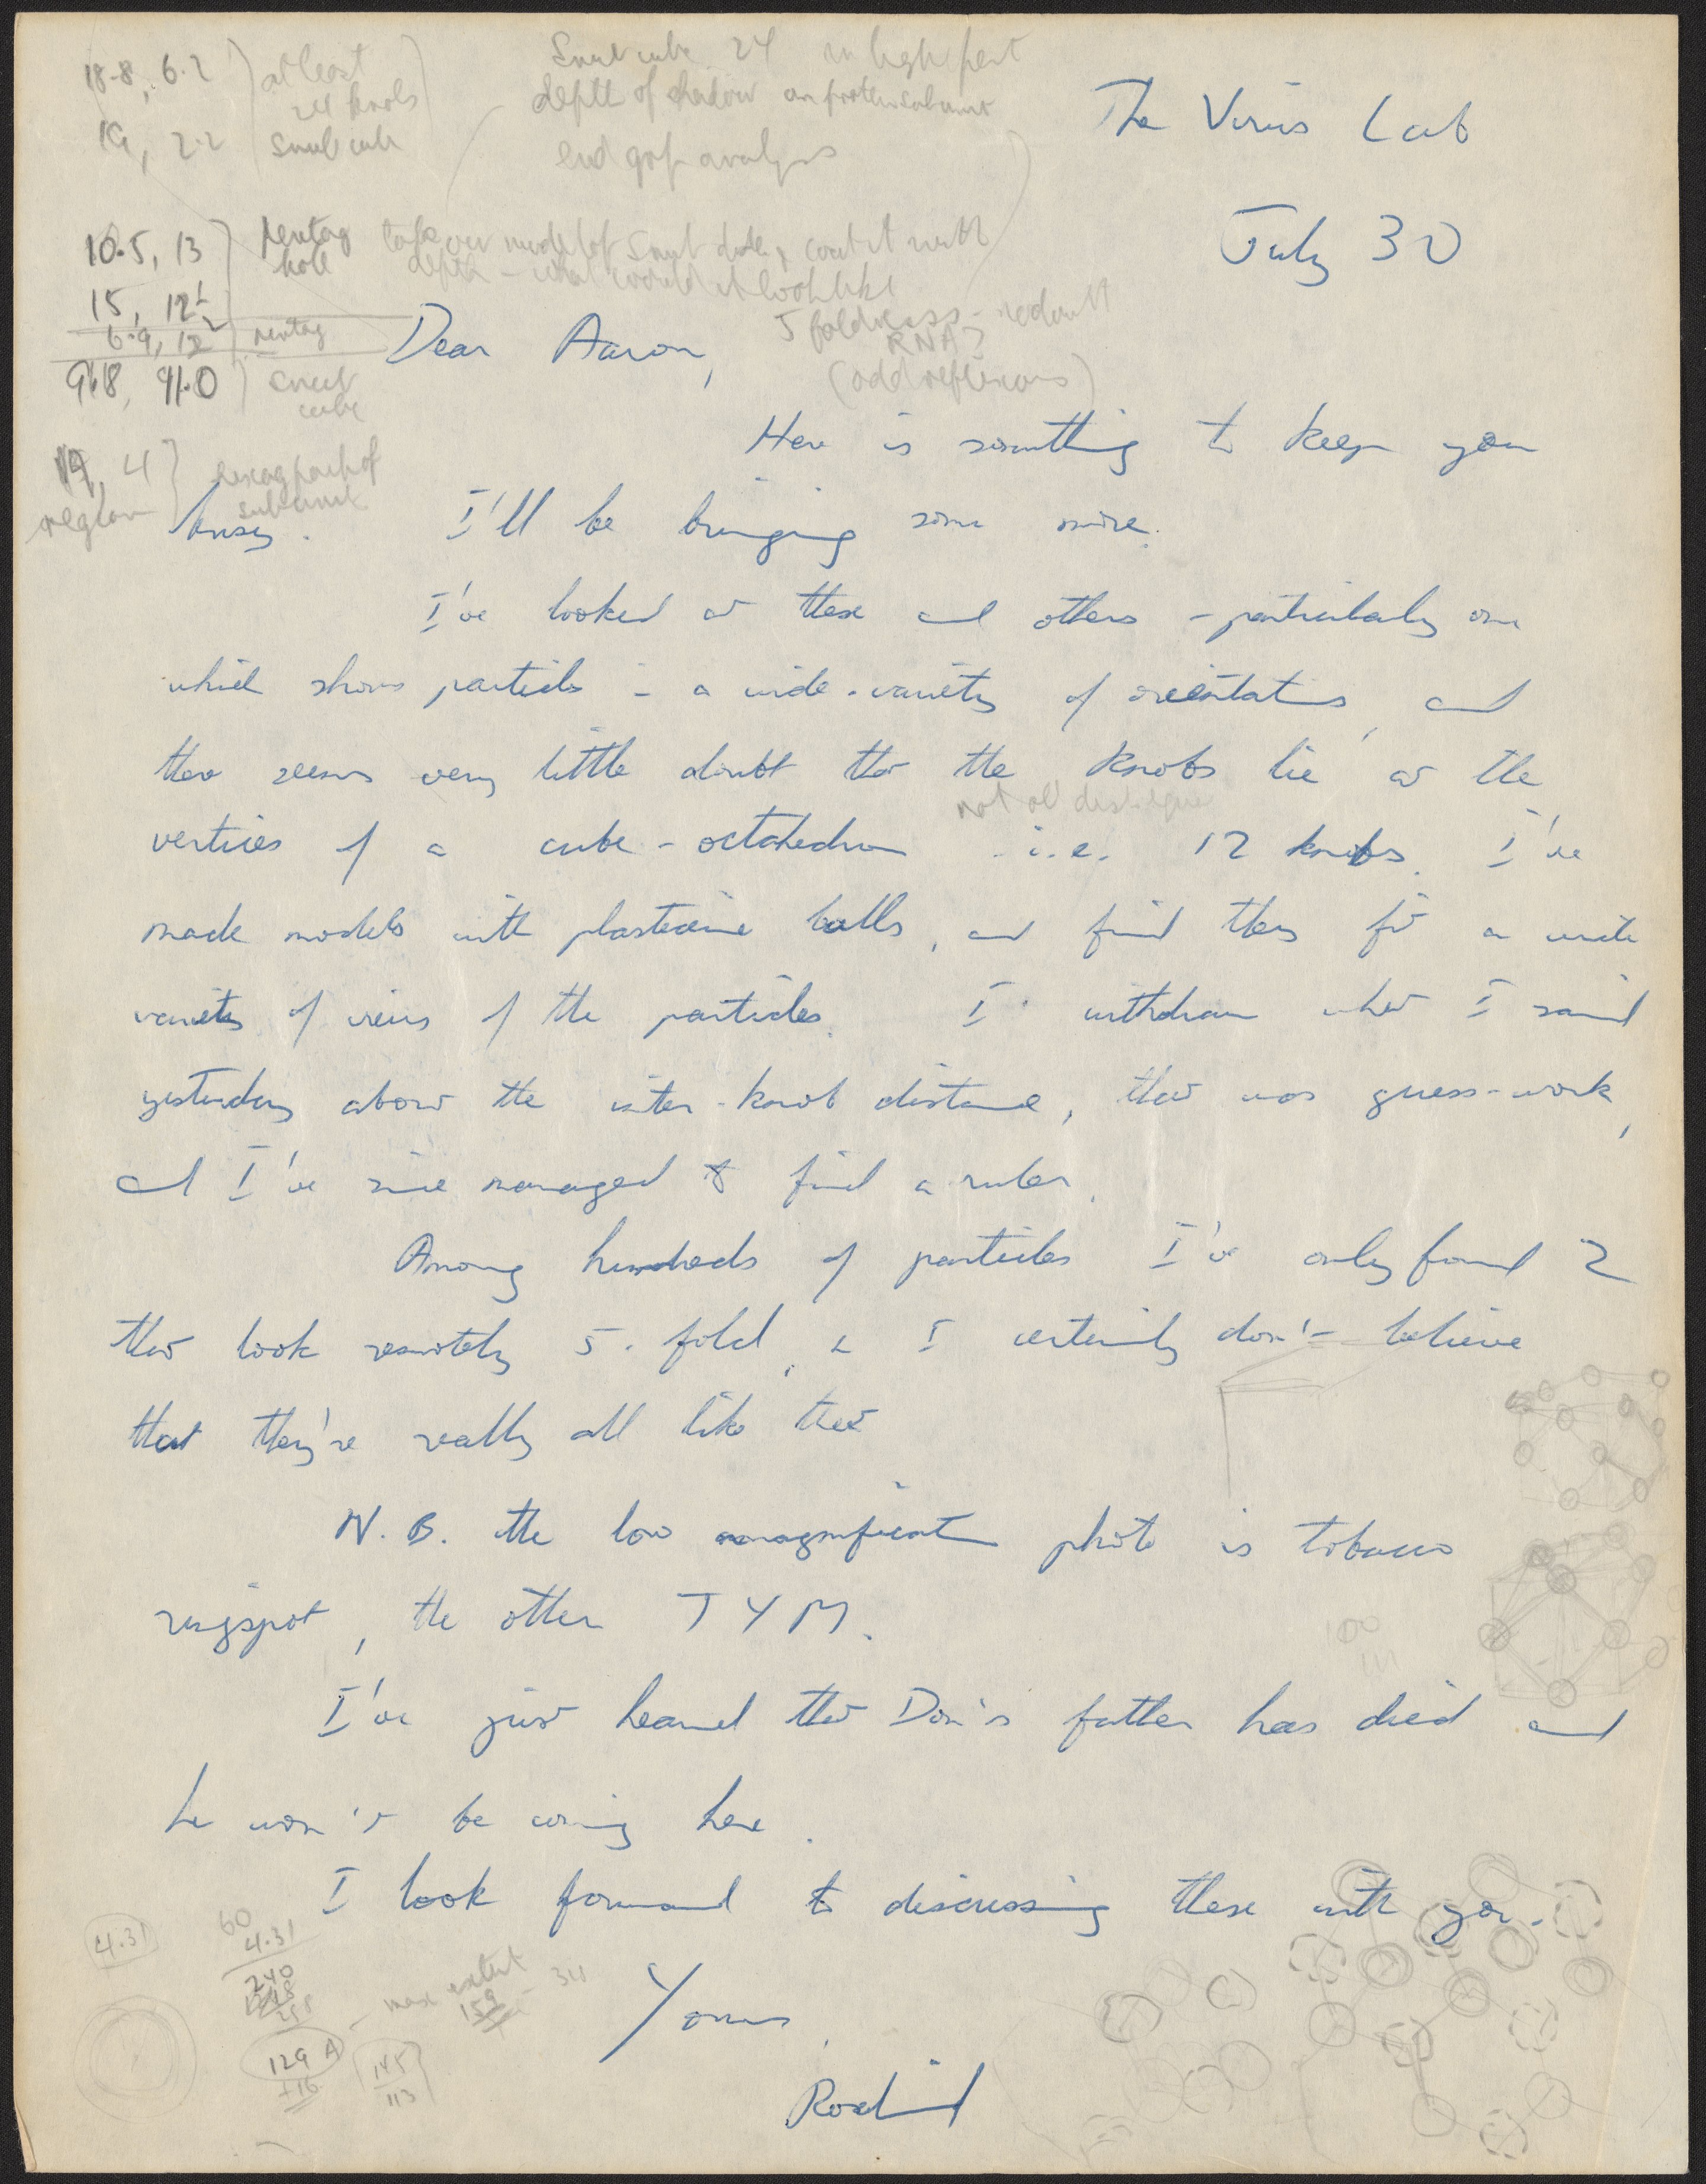 18.8, 6.2
at least
24 knobs
19, 2.2
Snub cube
Snub cube 24
depth of shadow on protein subunit
end gp analysis
The Virus Lab
July 30
10.5, 13
pentag
hole
15, 12
6.9, 12
pentag
9.8, 91.0
snub
cube
depth - what would it look like
5 foldness -
RNA?
(odd reflexions)
19, 4
region
hexag part of
subunit
Dear Aaron,
Here is something to keep you
busy. I'll be bringing some more.
I've looked at these and others - particularly one
which shows particles in a wide-variety of orientations, and
there seems very little doubt that the knobs lie at the
not all
vertices of a cube-octahedron i.e. 12 knobs. I've
made models with plasticine balls, and find they fit a wide
variety of views of the particles. I withdraw what I said
yesterday about the inter-knob distance, that was guess-work,
and I've since managed to find a ruler.
Among hundreds of particles I've only found 2
that look remotely 5-fold, & I certainly don't believe
that they're really all like that
N.B. the low magnification photo is tobacco
ringspot, the other TYM.
I've just heard that Don's father has died and
he won't be coming here.
I look forward to discussing these with you.
Yours,
Rosalind
4.31
60
4.31
240
129 A
+16
max extent
159
145
113